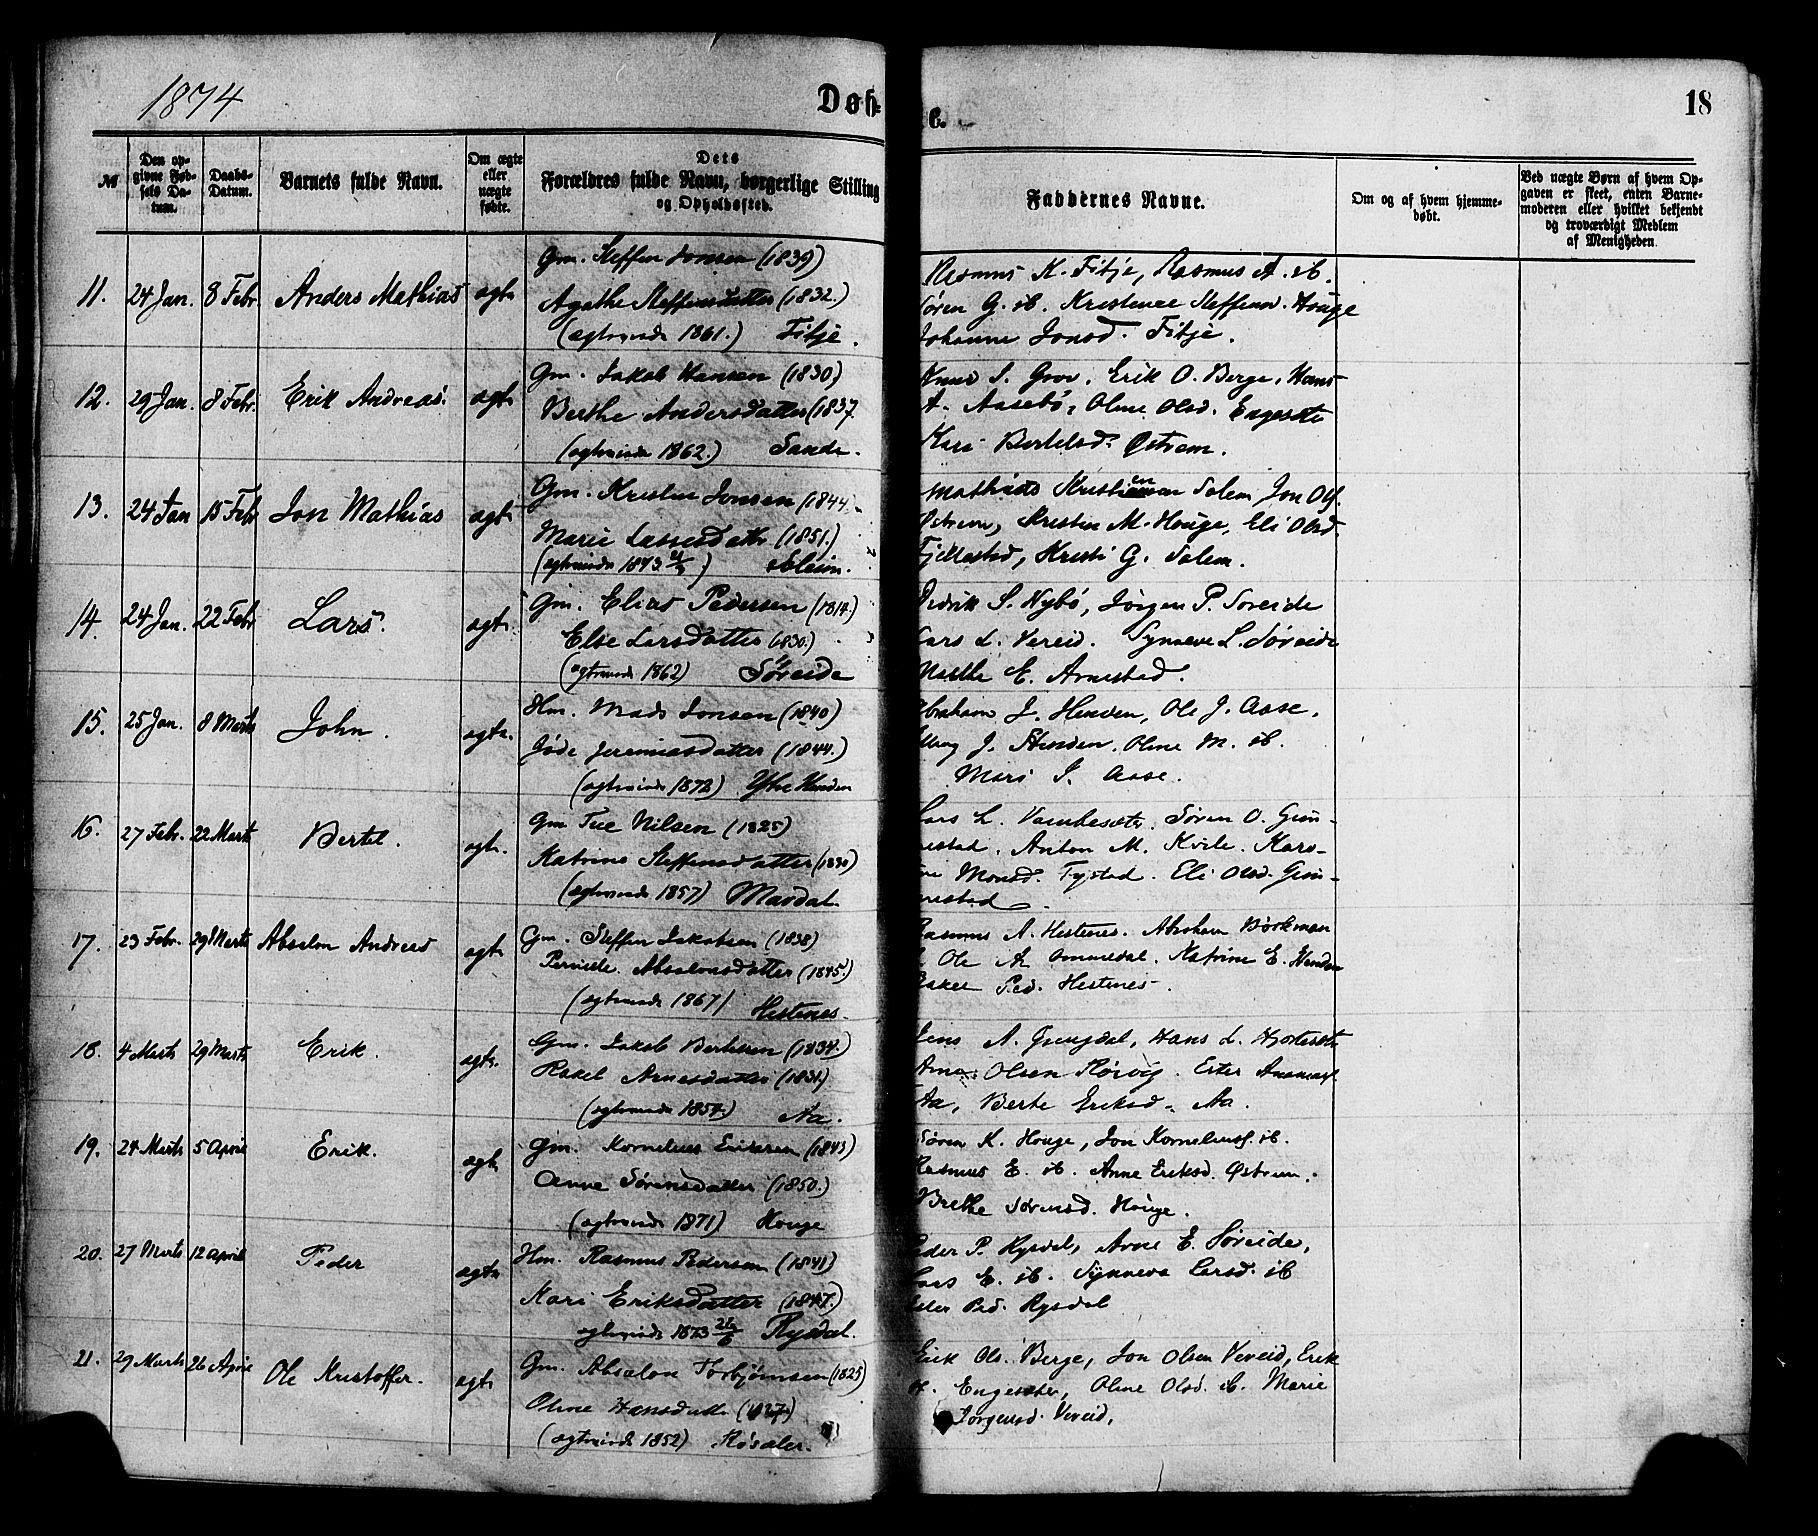 1874
Døb-
e.
18
№
Den op-
givne Fød-
sels Da-
tum.
Daabs-
Datum.
Barnets fulde Navn.
Om ægte
eller
uægte
født.
Dets
Forældres fulde Navn, borgerlige Stilling
og Opholdssted.
Faddernes Navne.
Om og af hvem hjemme-
døbt.
Ved uægte Børn af hvem Op-
gaven er skeet, enten Barne-
moderen eller hvilket bekjendt
og troværdigt Medlem
af Menigheden.
11. 24 Jan. 8 Febr. Anders Mathias ægte
Gm. Steffen Jonsen (1839)
Agathe Steffensdatter (1832.)
(ægteviede 1861.) Fitje.
Rasmus K. Fitje, Rasmus A. ib.
Søren G. ib. Kristense Steffensd. Houge
Johanne Jonsd. Fitje.
12. 29 Jan. 8 Febr. Erik Andreas. ægte
Gm. Jakob Hansen (1830)
Berthe Andersdatter (1837
(ægteviede 1862.) Sande.
Knud S. Goov. Erik O. Berge, Hans
A. Aasebø, Oline Olsd. Engesæte
Kari Bertelsd. Østrem.
13. 24 Jan 15 Febr Jon Mathias ægte
Gm. Kristen Jonsen (1844)
Marie Lassesdatter (1851.)
(ægteviede 1873)
Mathias Kristiansen Solem, Jon Ols.
Østrem, Kristen M. Houge, Eli Olsd.
Fjellestad, Kristi G. Solem.
14. 24 Jan. 22 Febr Lars. ægte.
Gm. Elias Pedersen (1814)
Else Larsdatter (1830.)
(ægteviede 1862) Søreide
Didrik S. Nybø, Jørgen P. Søreide
Lars L. Vereid. Synneve L. Søreide
Malthe E. Arnestad.
15. 25 Jan. 8 Marts John. ægte.
Hm. Mads Jonsen (1840)
Jøde Jeremiasdatter (1844.)
(ægteviede 1872) Ytre Henden
Abraham J. Henden, Ole J. Aase.
J. Henden. Oline M. ib.
Mari J. Aase.
16. 27 Febr. 22 Marts Bertel. ægte.
Gm Tue Nilsen (1825)
Katrine Steffensdatter (1830)
(ægteviede 1857) Mardal.
Lars L. Vambesæter. Søren O. Gim-
mestad. Anton M. Kvile. Kars-
Monsd. Tystad. Eli Olsd. Gim-
mestad.
17. 23 Febr. 29 Marts Absalon Andreas ægte
Gm. Steffen Jakobsen (1838)
Pernille Absalonsdatter (1845)
(ægteviede 1867) Hestenes
Rasmus A. Hestenes. Abraham Børkman
Ole A. Ommedal. Katrine E. Henden
Rakel Ped. Hestenes.
18. 4 Marts 29 Marts Erik. ægte.
Gm. Jakob Bertelsen (1834)
Rakel Arnesdatter (1831)
(ægteviede 1854) Aa.
Jens A. Gjengdal, Hans L. Hjortesæte
Arne Olsen Rørvig. Ester
Aa, Berte Eriksd. Aa.
19. 24 Marts 5 April Erik. ægte
Gm. Kornelius Eriksen (1843)
Anne Sørensdatter (1850.)
(ægteviede 1871) Houge
Søren K. Houge, Jon Korneliuss. ib.
Rasmus E. ib. Anne Eriksd. Østrem.
Brethe Sørensd. Houge.
20. 27 Marts 12 April Peder ægte
Hm. Rasmus Pedersen (1841)
Kari Eriksdatter (1847.)
ægteviede 1873 Rysdal.
Peder P. Rysdal, Anne E. Søreide,
Lars E. ib. Synneva Larsd. ib
Ped. Rysdal
21. 29 Marts 26 April Ole Kristoffer. ægte
Gm. Absalon Torbjørnsen (1825)
Oline Hansdatter (1827)
(ægteviede 1852) Røsæter.
Erik Ols. Berge, Jon Olsen Vereid, Erik
Engesæter, Oline Olsd. ib. Marie
Jørgensd. Vereid.